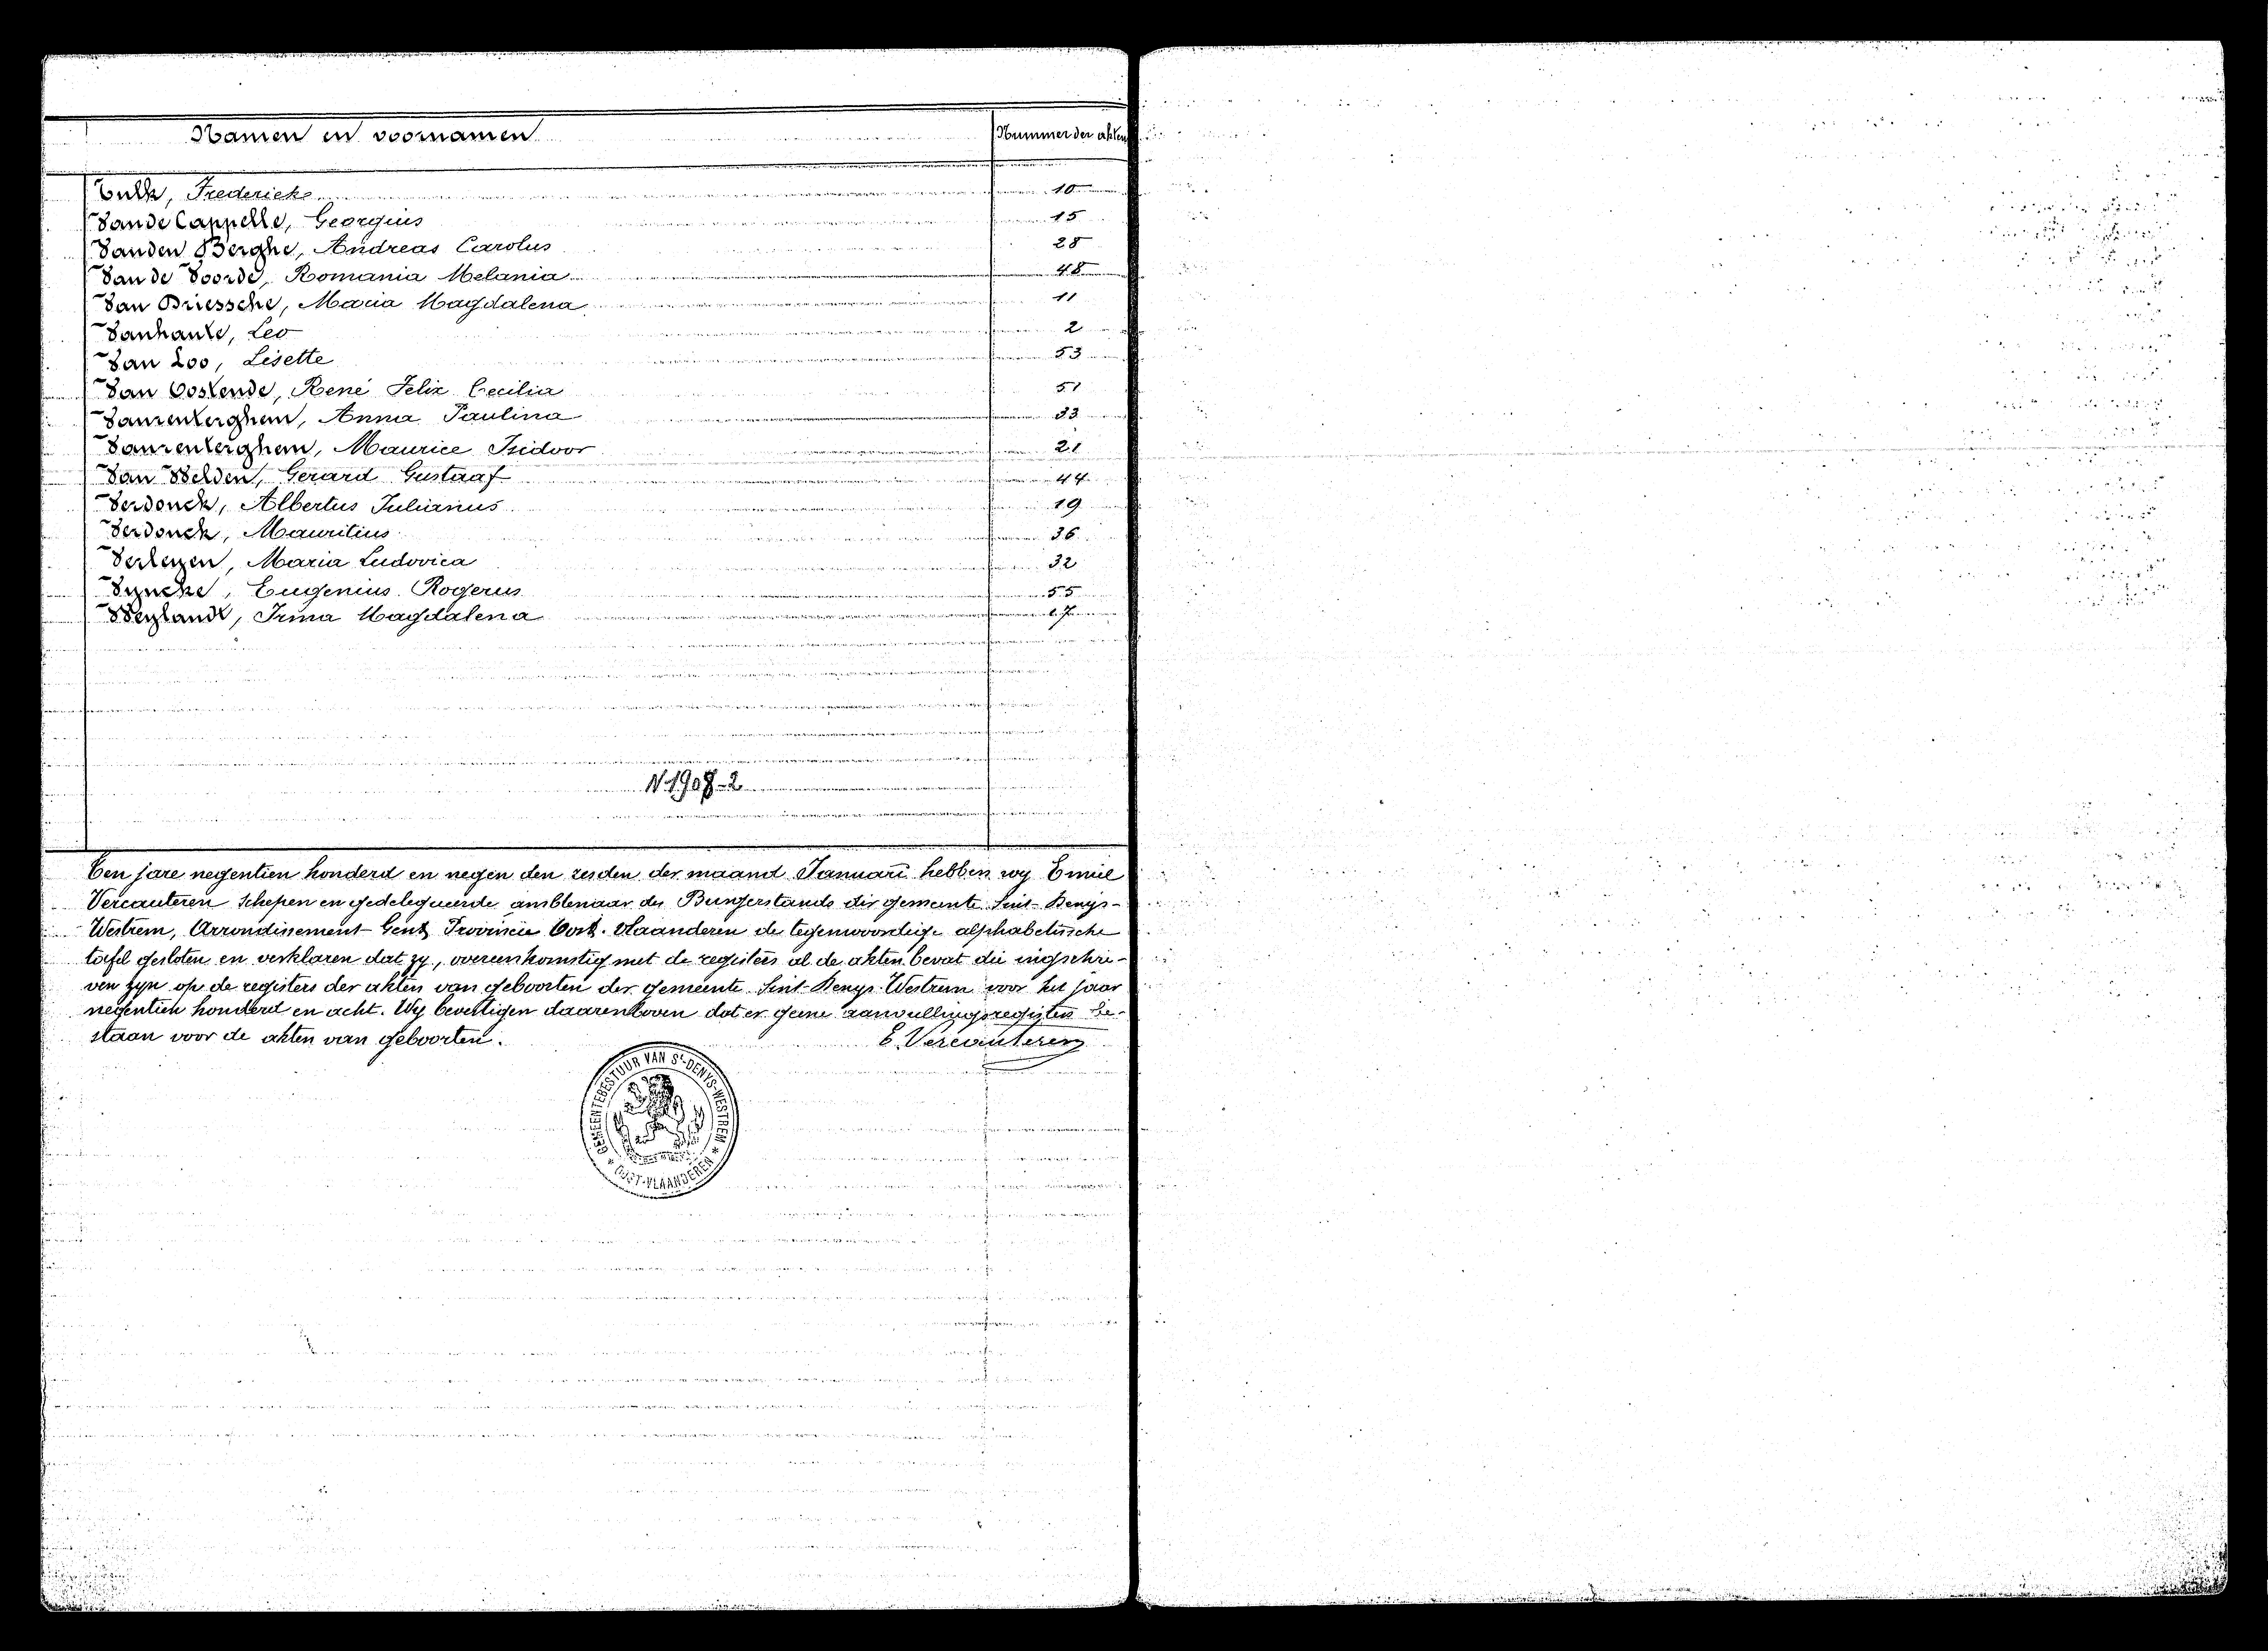 Namen en voornamen Nummer der akten
Frederick 10
Van de Cappelle, Georgius 15
Van den Berghe, Andreas Carolus 28
Van de Voorde, Romania Melania 48
Van Driessche, Maria Magdalena 11
Vanhaute, Leo 2
Van Loo, Lisette 53
Van Oostende, René Felix Cecilia 51
Vanrenterghem, Anna Paulina 33
Vanrenterghem, Maurice Isidoor 21
Van Velden, Gerard Gustaaf 44
Verdonck, Albertus Julianus 19
Verdonck, Mauritius 36
Verleyen, Maria Ludovica 32
Vyncke, Eugenius Rogerus 55
Weylandt, Irma Magdalena
N. 1908-2
Ten jare negentien honderd en negen den zesden der maand Januari hebben wy Emiel
Vercauteren Schepen en gedelegueerde ambtenaar des Burgerstands der gemeente Sint-Denys-
Westrem, Arrondissement Gent Provincie Oost-Vlaanderen de tegenwoordige alphabetische
tafel gesloten en verklaren dat zy, overeenkomstig met de registers al de akten bevat die ingeschre-
ven zyn op de registers der akten van geboorten der gemeente Sint-Denys-Westrem voor het jaar
negentien honderd en acht. Wy bevestigen daarenboven dat er geene aanvullingsregisters be-
staan voor de akten van geboorten.
E. Vercauteren
GEMEENTEBESTUUR VAN ST-DENYS-WESTREM
OOST-VLAANDEREN